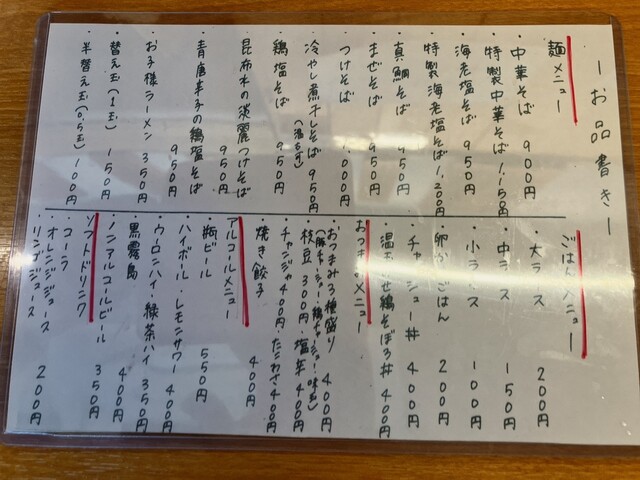 ーお品書きー
麺メニュー
・中華そば 900円
・特製中華そば 1,150円
・海老塩そば 950円
・特製海老塩そば 1,200円
・真鯛そば 950円
・まぜそば 950円
・つけそば 1,000円
・冷やし煮干しそば 950円
(温も可)
・鶏塩そば 950円
・昆布水の淡麗つけそば 950円
・青唐辛子の鶏塩そば 950円
・お子様ラーメン 350円
・替え玉(1玉) 150円
・半替え玉(0.5玉) 100円
ごはんメニュー
・大ライス 200円
・中ライス 150円
・小ライス 100円
・卵かけごはん 200円
・チャーシュー丼 400円
・温玉のせ鶏そぼろ丼 400円
おつまみメニュー
・おつまみ3種盛り
(豚チャーシュー・鶏チャーシュー・味玉)
・枝豆 300円 塩辛 400円
・チャンジャ 400円・たこわさ 400円
・焼き餃子 400円
アルコールメニュー
・瓶ビール 550円
・ハイボール・レモンサワー 400円
・ウーロンハイ・緑茶ハイ 350円
・黒霧島 400円
・ノンアルコールビール 350円
ソフトドリンク
・コーラ
・オレンジジュース
・リンゴジュース 200円